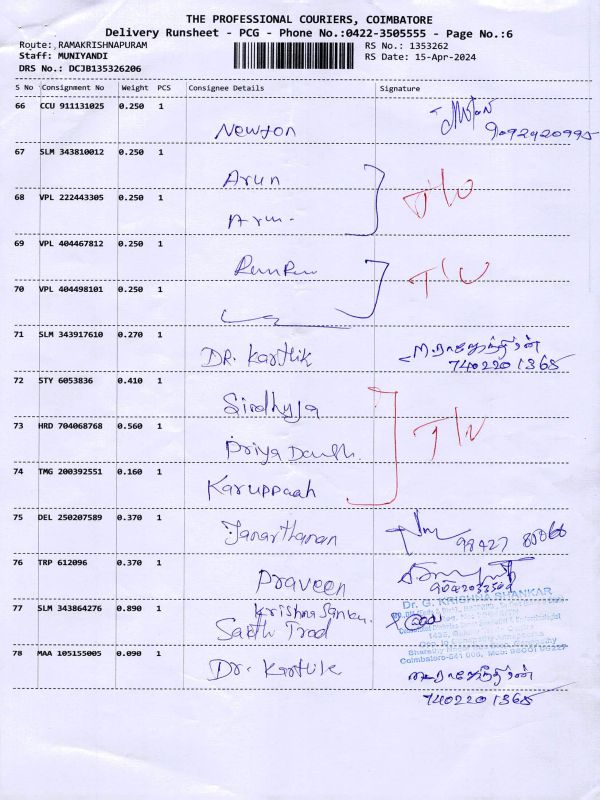 THE PROFESSIONAL COURIERS, COIMBATORE
Delivery Runsheet - PCG - Phone No.:0422-3505555 - Page No.:6
Route: RAMAKRISHNAPURAM
RS No.: 1353262
Staff: MUNIYANDI
RS Date: 15-Apr-2024
DRS No.: DCJB135326206
S No Consignment No Weight PCS Consignee Details Signature
66 CCU 911131025 0.250 1
Newton
9092920995
67 SLM 343810012 0.250 1
Arun
68 VPL 222443305 0.250 1
T/U
Arun
69 VPL 404467812 0.250 1
T/U
70 VPL 404498101 0.250 1
71 SLM 343917610 0.270 1
DR. Karthik
7402201365
72 STY 6053836 0.410 1
Sirdhuja
73 HRD 704068768 0.560 1
T/U
Priya
74 TMG 200392551 0.160 1
Karuppaah
75 DEL 250207589 0.370 1
Janarthanan
98427
76 TRP 612096 0.370 1
Praveen
77 SLM 343864276 0.890 1
Krishna
Dr. G. KRISHNA SHANKAR
Trad
Coimbatore-641 006,
78 MAA 105155005 0.090 1
Dr. Karthik
7402201365